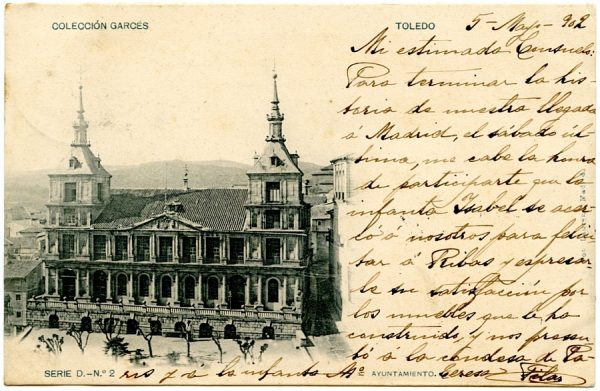 COLECCIÓN GARCÉS
TOLEDO
5 - Mayo - 902
Mi estimada Consuelo:
Para terminar la his-
toria de nuestra llegada
á Madrid, el sábado úl-
timo, me cabe la honra
de participarte que la
infanta Isabel se acer-
có á nosotros para felici-
tar á Ribas y expresar-
le su satisfacción por
los muebles que le ha
construido, y nos presen-
tó á la condesa de Pa-
ris y á la infanta Mª Teresa.
SERIE D.-N.º 2
AYUNTAMIENTO.